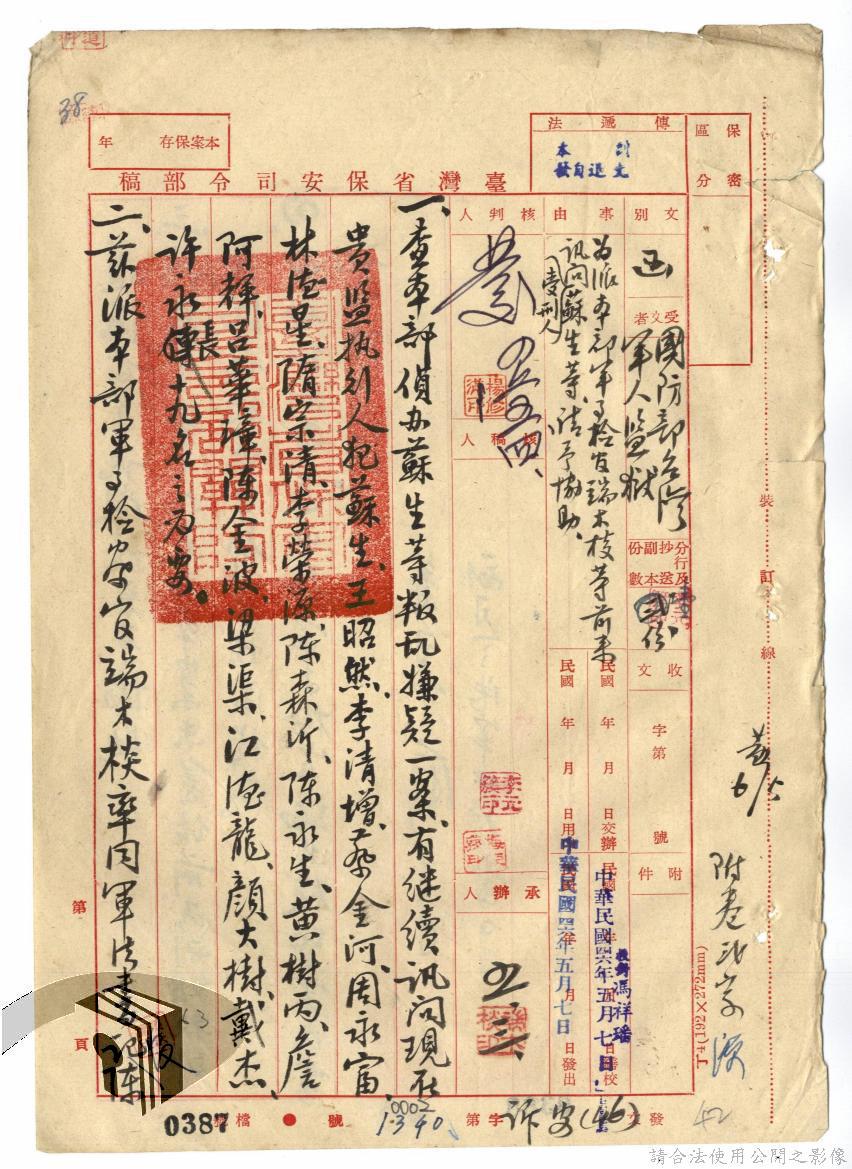 38
本案保存 年
臺灣省保安司令部稿
傳遞法
保密區分
文別 函
受文者 國防部台灣軍人監獄
事由
為派本部軍事檢察官端木棪等前來
訊問受刑人蘇生等、請予協助、
核判人
核稿人
承辦人
五三
分行及抄送副本份數
收文 字第 號
附件
民國 年 月 日交辦
民國 年 月 日用印
中華民國四六年五月七日
中華民國四六年五月七日
校對 馮祥璠
發文 (46) 安訴 字第 0002 1340 號
檔號 0387
一、查本部偵办蘇生等叛乱嫌疑一案、有继續訊问現在
貴监执行人犯蘇生、王昭然、李清增、蔡金河、周永富、
林德星、隋宗清、李榮源、陈森沂、陈永生、黄樹丙、詹
阿輝、吕華璋、陈金波、梁渠、江德龍、顏大樹、戴杰、
许永長十九名之必要。
二、兹派本部軍事檢察官端木棪率同軍法書記陳
第 頁
裝訂線
T4(192×272mm)
42
請合法使用公開之影像